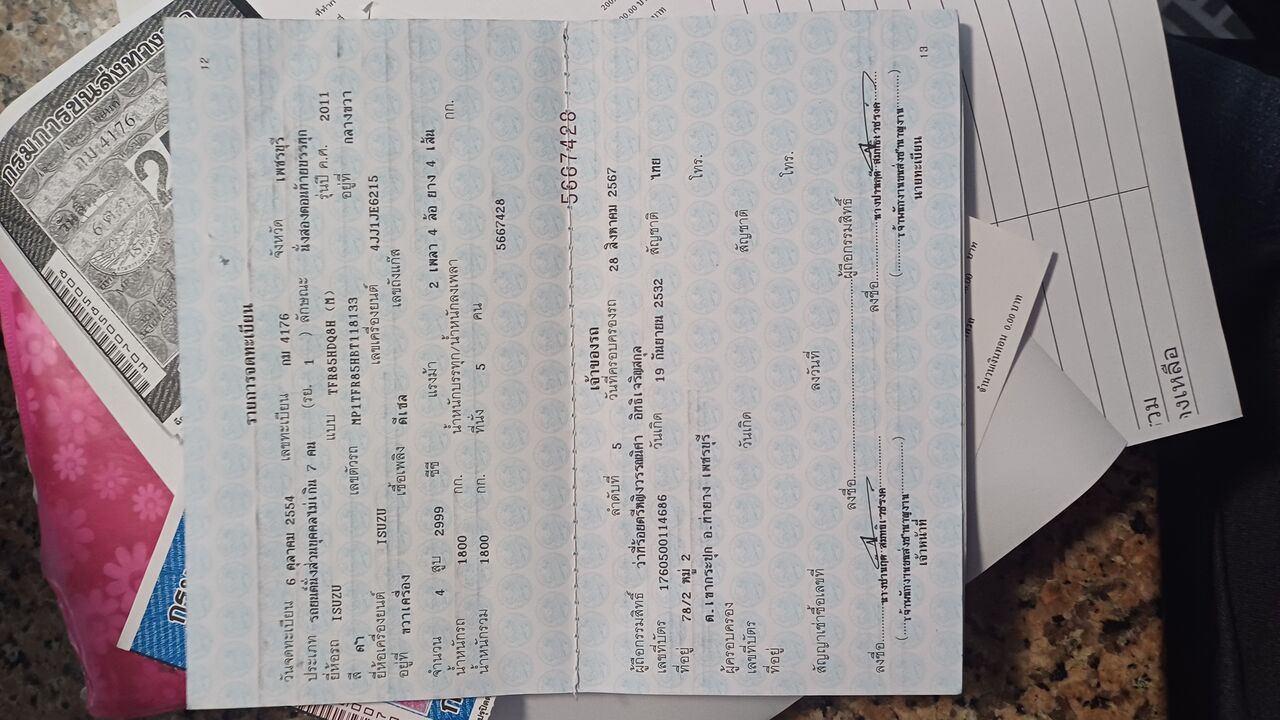 12
รายการจดทะเบียน
วันจดทะเบียน 6 ตุลาคม 2554 เลขทะเบียน กม 4176 จังหวัด เพชรบุรี
ประเภท รถยนต์นั่งส่วนบุคคลไม่เกิน 7 คน (รย. 1 ) ลักษณะ นั่งสองตอนท้ายบรรทุก
ยี่ห้อรถ ISUZU แบบ TFR85HDQ8H (M) รุ่นปี ค.ศ. 2011
สี ดำ เลขตัวรถ MP1TFR85HBT118133 อยู่ที่ กลางขวา
ยี่ห้อเครื่องยนต์ ISUZU เลขเครื่องยนต์ 4JJ1JE6215
อยู่ที่ ขวาเครื่อง เชื้อเพลิง ดีเซล เลขถังแก๊ส
จำนวน 4 สูบ 2999 ซีซี แรงม้า 2 เพลา 4 ล้อ ยาง 4 เส้น
น้ำหนักรถ 1800 กก. น้ำหนักบรรทุก/น้ำหนักลงเพลา กก.
น้ำหนักรวม 1800 กก. ที่นั่ง 5 คน
5667428
5667428
เจ้าของรถ
ลำดับที่ 5 วันที่ครอบครองรถ 28 สิงหาคม 2567
ผู้ถือกรรมสิทธิ์ ว่าที่ร้อยตรีหญิงวรรณิศา อิทธิเจริญสกุล
เลขที่บัตร 1760500114686 วันเกิด 19 กันยายน 2532 สัญชาติ ไทย
ที่อยู่ 78/2 หมู่ 2 โทร.
ต.เขากระปุก อ.ท่ายาง เพชรบุรี
ผู้ครอบครอง
เลขที่บัตร วันเกิด สัญชาติ
ที่อยู่ โทร.
สัญญาเช่าซื้อเลขที่ ลงวันที่
ลงชื่อ ผู้ถือกรรมสิทธิ์
ลงชื่อ ลงชื่อ
(เจ้าพนักงานขนส่งชำนาญงาน) (เจ้าพนักงานขนส่งชำนาญงาน)
เจ้าหน้าที่ นายทะเบียน
13
กรมการขนส่งทางบก
กม 4176
6 ต.ค.
จำนวนเงินทอน 0.00 บาท
รวม